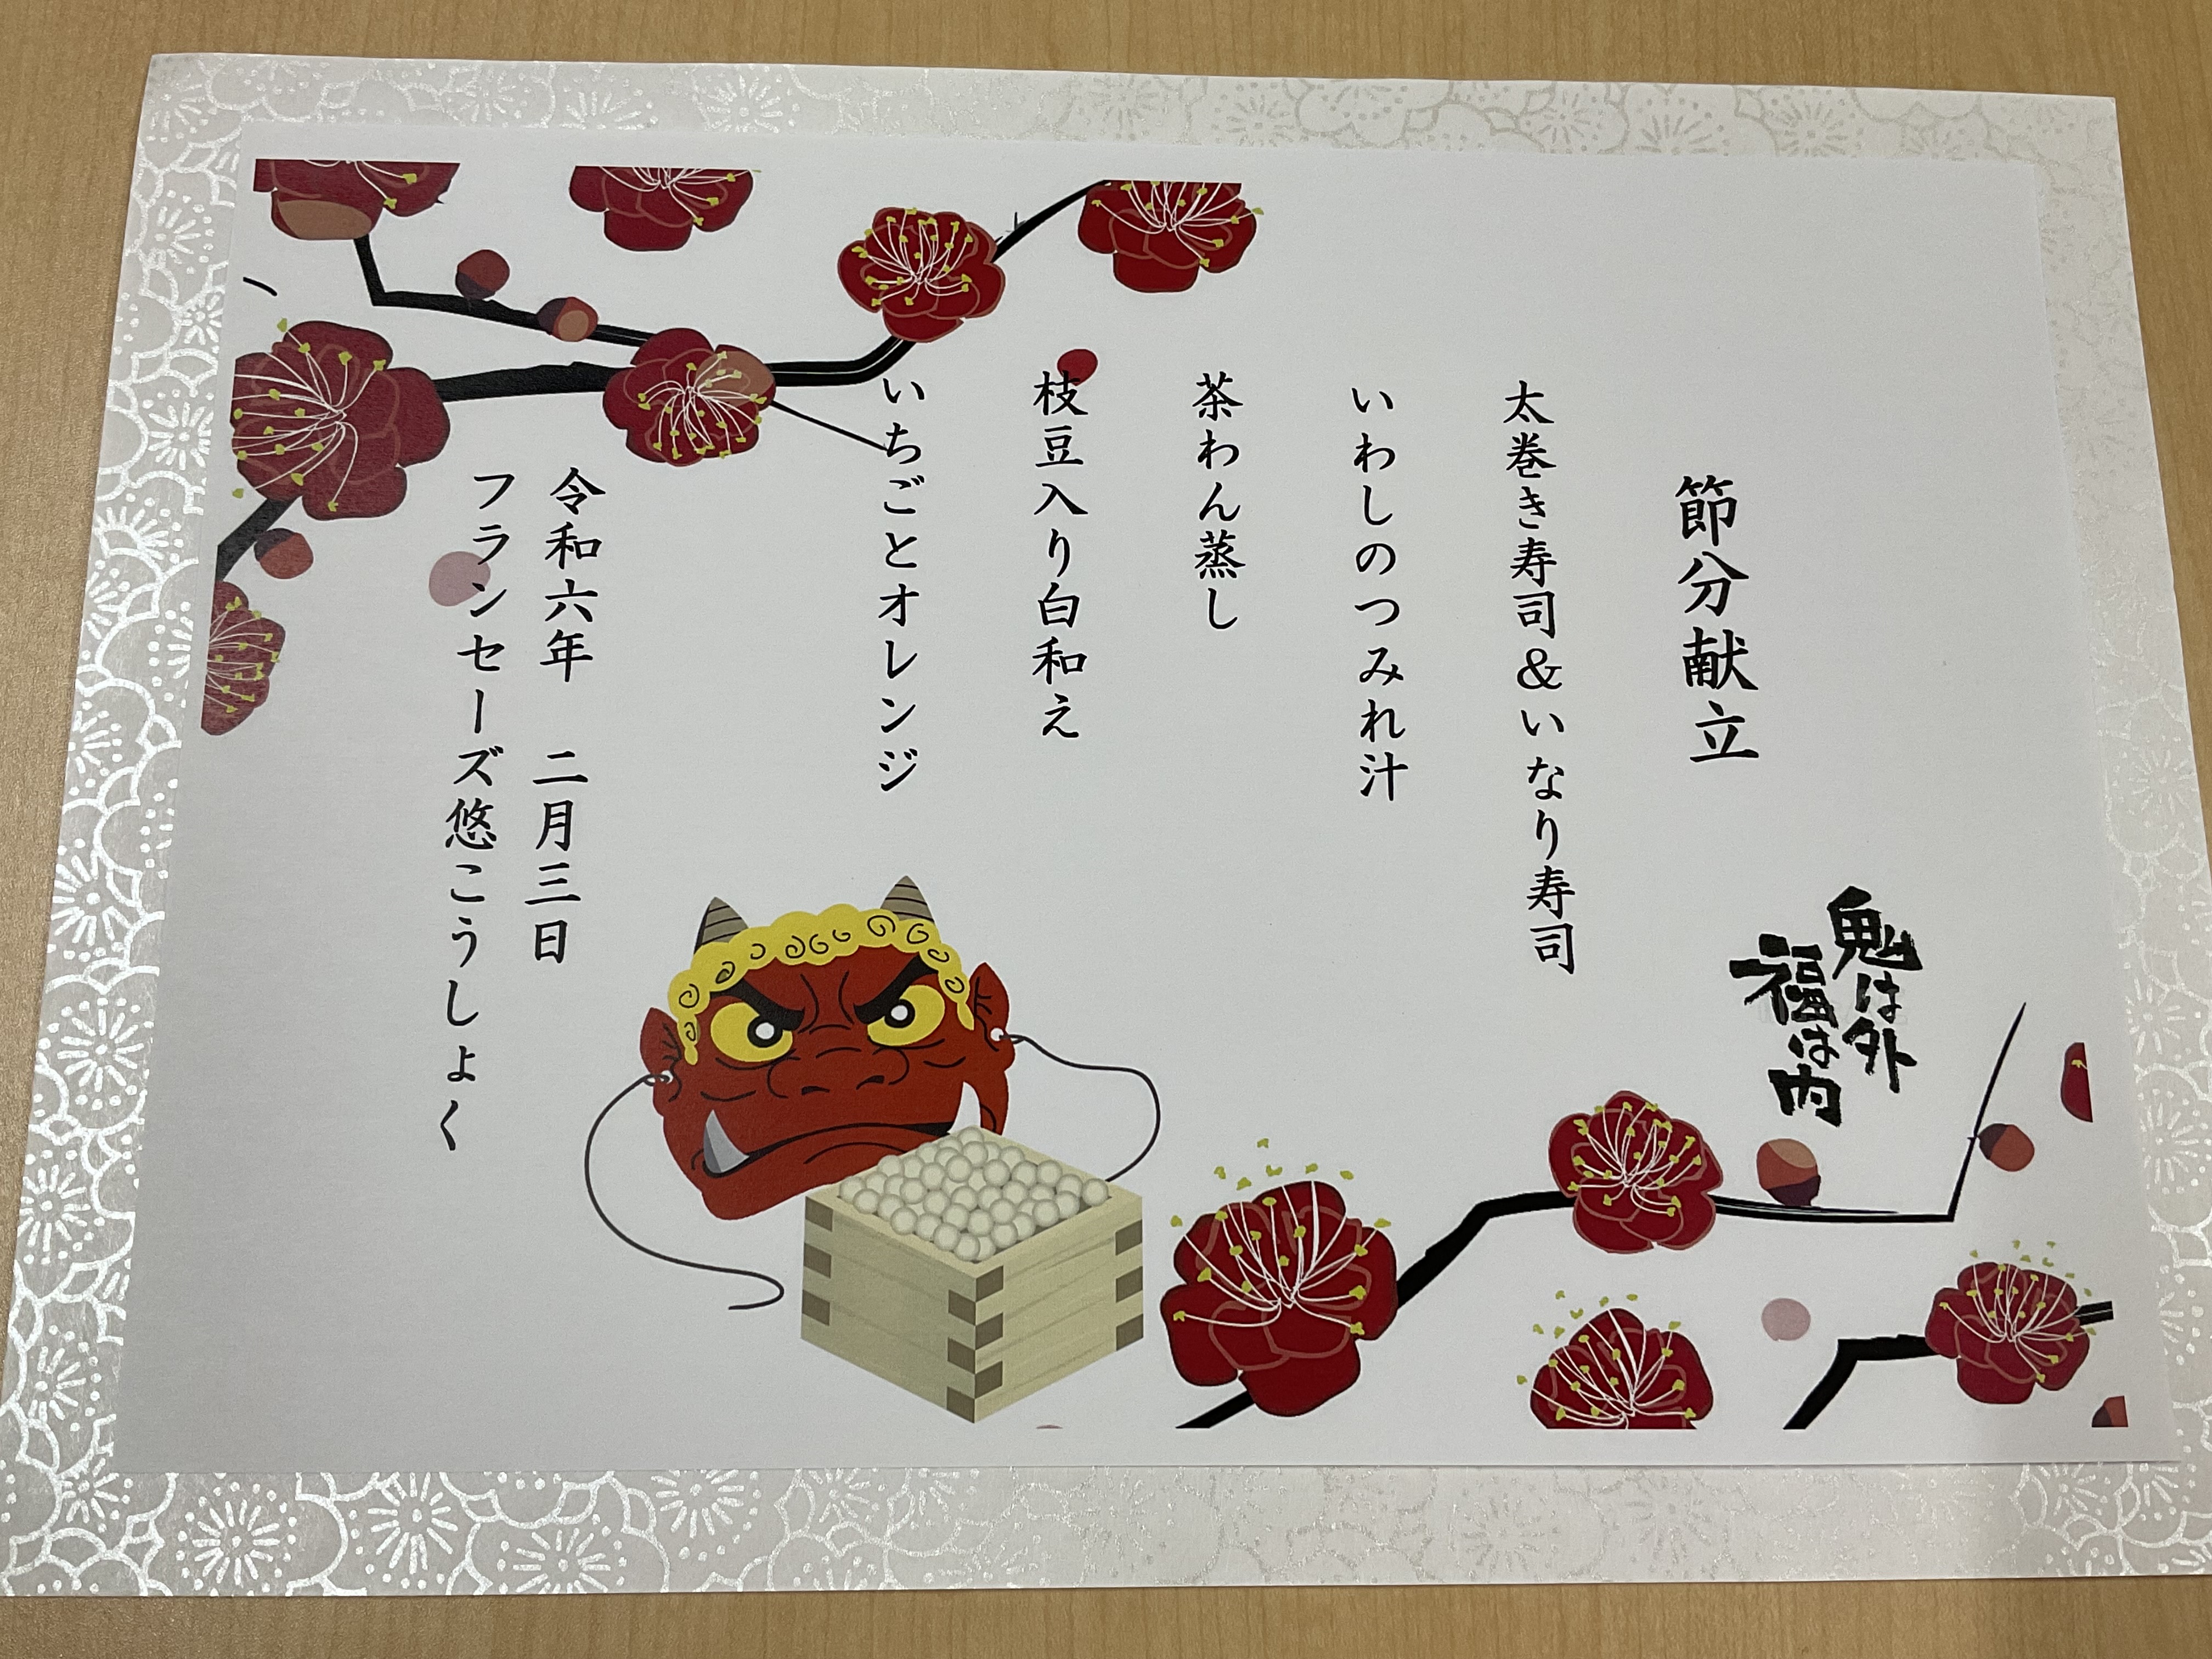 節分献立
鬼は外
福は内
太巻き寿司&いなり寿司
いわしのつみれ汁
茶わん蒸し
枝豆入り白和え
いちごとオレンジ
令和六年 二月三日
フランセーズ悠こうしょく